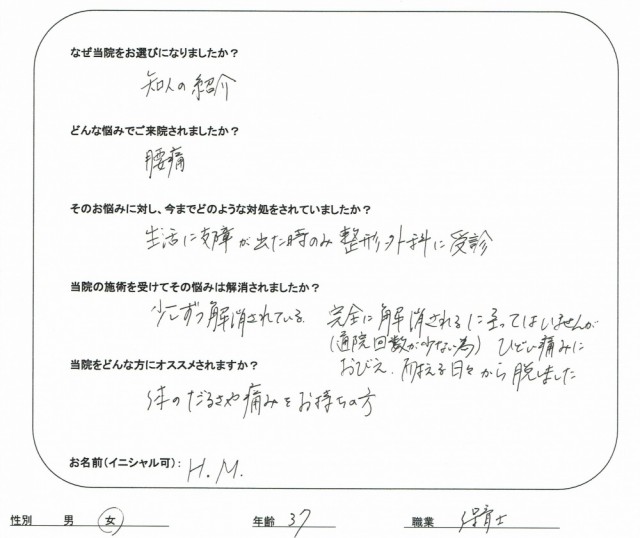 なぜ当院をお選びになりましたか？
知人の紹介
どんな悩みでご来院されましたか？
腰痛
そのお悩みに対し、今までどのような対処をされていましたか？
生活に支障が出た時のみ整形外科に受診
当院の施術を受けてその悩みは解消されましたか？
少しずつ解消されている。 完全に解消されるに至ってはいませんが
(通院回数が少ない為) ひどい痛みに
おびえ、耐える日々から脱しました
当院をどんな方にオススメされますか？
体のだるさや痛みをお持ちの方
お名前(イニシャル可)： H.M.
性別 男 女 年齢 37 職業 保育士